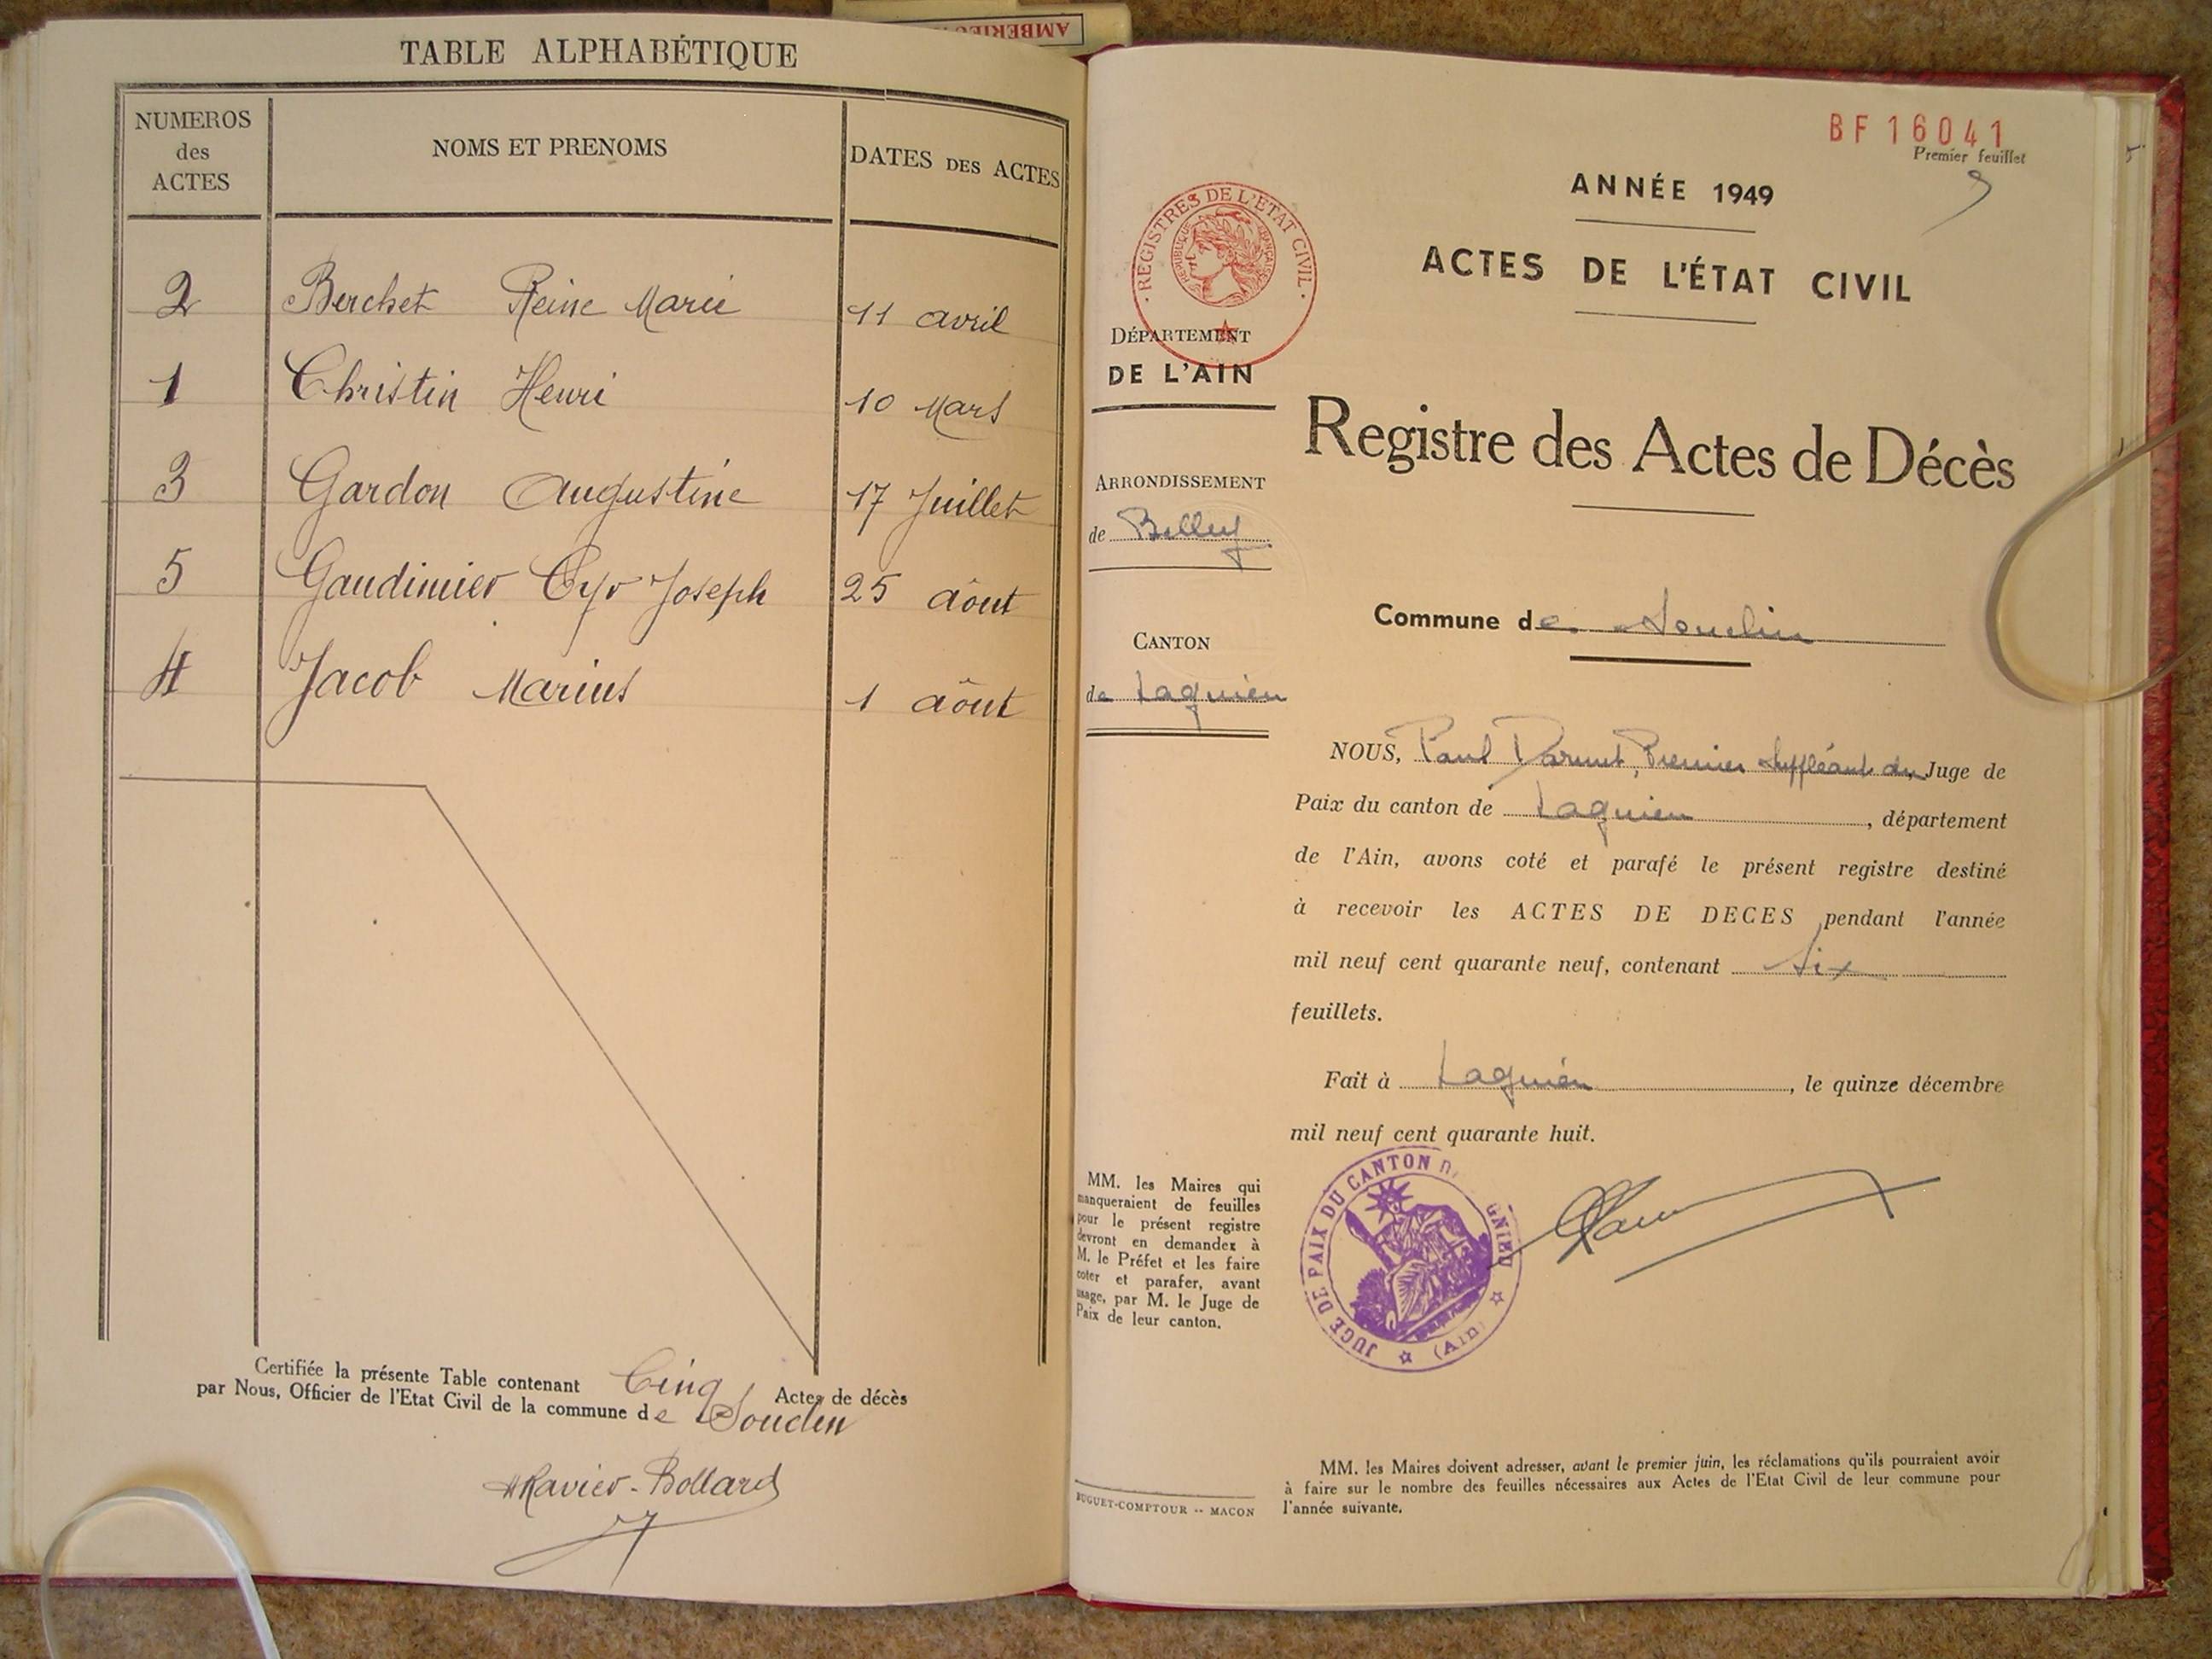 AMBERIEU
TABLE ALPHABÉTIQUE
NUMEROS
des
ACTES
NOMS ET PRENOMS
DATES DES ACTES
2 Berchet Reine Marie 11 avril
1 Christin Henri 10 Mars
3 Gardon Augustine 17 Juillet
5 Gaudimier Cyr Joseph 25 aôut
4 Jacob Marius 1 aôut
Certifiée la présente Table contenant Cinq Actes de décès
par Nous, Officier de l'Etat Civil de la commune de Souclin
Ravier-Bollard
BF 16041
Premier feuillet
ANNÉE 1949
ACTES DE L'ÉTAT CIVIL
REGISTRES DE L'ETAT CIVIL
REPUBLIQUE FRANÇAISE
DÉPARTEMENT
DE L'AIN
Registre des Actes de Décès
ARRONDISSEMENT
de Belley
Commune de Souclin
CANTON
de Lagnieu
NOUS, Paul Darmet, Premier Suppléant du Juge de
Paix du canton de Lagnieu, département
de l'Ain, avons coté et parafé le présent registre destiné
à recevoir les ACTES DE DECES pendant l'année
mil neuf cent quarante neuf, contenant six
feuillets.
Fait à Lagnieu, le quinze décembre
mil neuf cent quarante huit.
MM. les Maires qui
manqueraient de feuilles
pour le présent registre
devront en demander à
M. le Préfet et les faire
coter et parafer, avant
usage, par M. le Juge de
Paix de leur canton.
JUGE DE PAIX DU CANTON D GNIEU
(Ain)
MM. les Maires doivent adresser, avant le premier juin, les réclamations qu'ils pourraient avoir
à faire sur le nombre des feuilles nécessaires aux Actes de l'Etat Civil de leur commune pour
l'année suivante.
BUGUET-COMPTOUR -- MACON